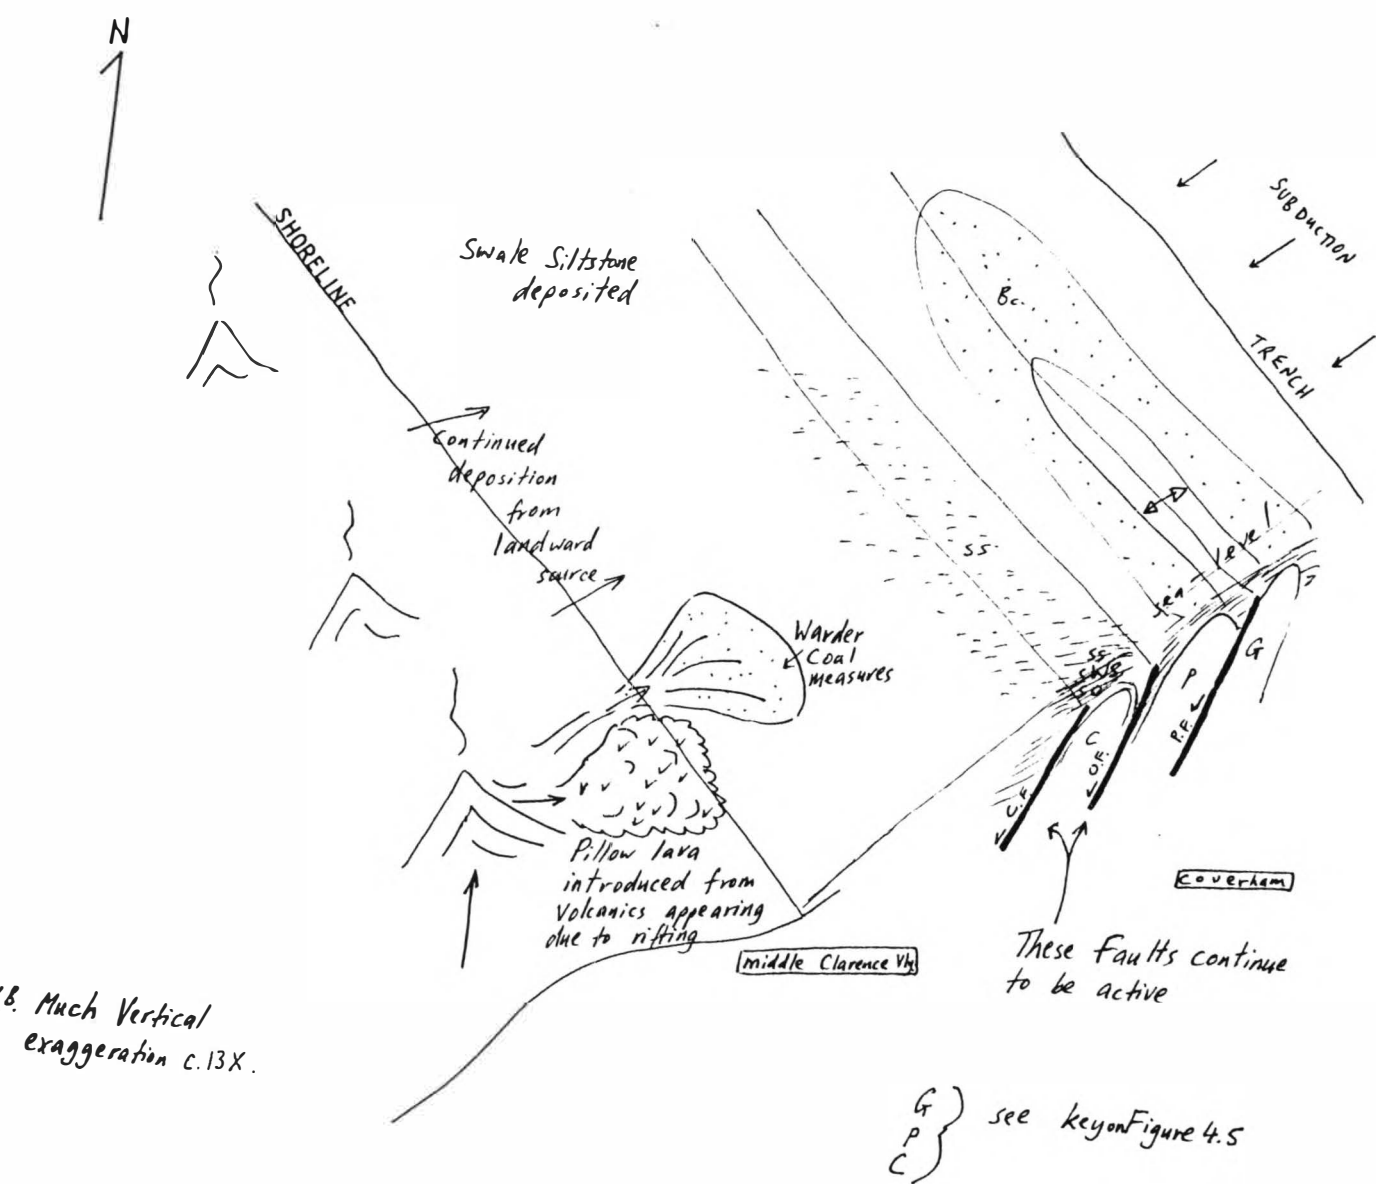 N
SHORELINE
Swale Siltstone
deposited
SUBDUCTION
TRENCH
Bc.
Continued
deposition
from
landward
source
sea level
ss
Warder
Coal
measures
ss
sws
so
G
P
P.F.
C
O.F.
C.F.
Pillow lava
introduced from
Volcanics appearing
due to rifting
middle Clarence Vly
coverham
These Faults continue
to be active
B. Much Vertical
exaggeration c.13X.
G
P
C
see key on Figure 4.5